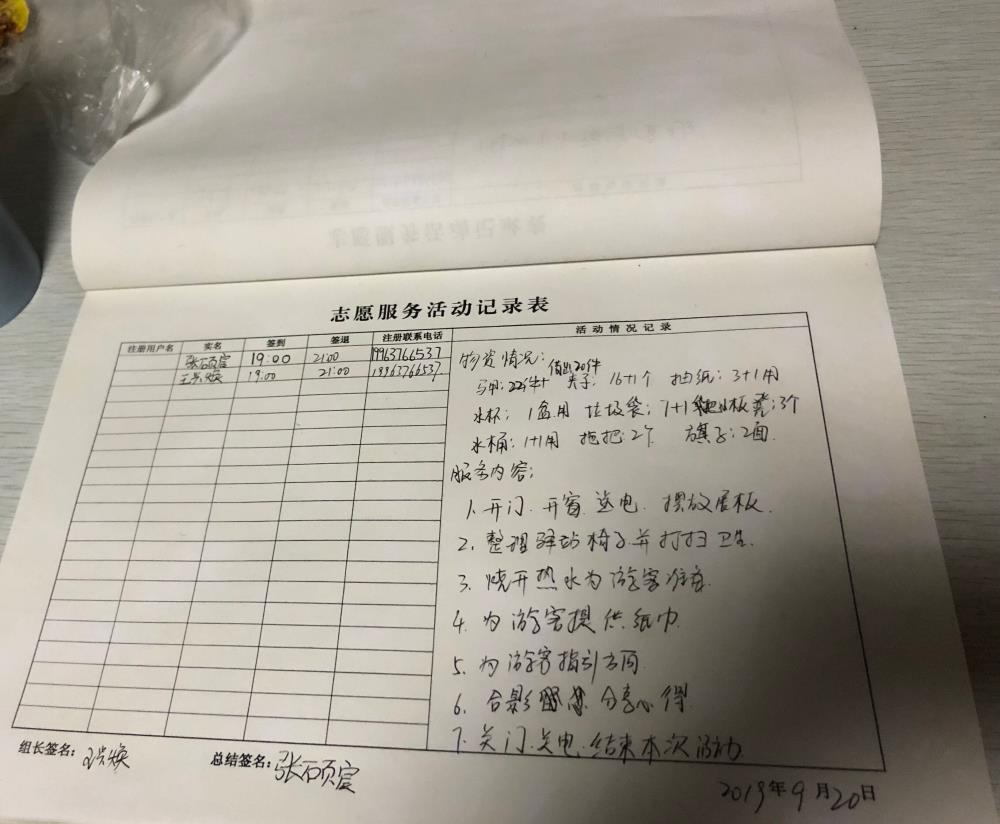 志愿服务活动记录表
注册用户名 实名 签到 签退 注册联系电话 活动情况记录
张硕宸 19:00 21:00 19963766537
19:00 21:00 19963766537
物资情况: 借出20件
马甲: 22件+ 夹子: 16+1个 抽纸: 3+1用
水杯: 1盒用 垃圾袋: 7+1 板凳: 3个
水桶: 1+1用 拖把: 2个 旗子: 2面.
服务内容:
1. 开门. 开窗 送电. 摆放展板.
2. 整理驿站椅子并打扫卫生.
3. 烧开热水为游客准备
4. 为游客提供纸巾.
5. 为游客指引方向.
6. 合影 分享心得
7. 关门. 关电. 结束本次活动
组长签名:
总结签名: 张硕宸
2019年9月20日